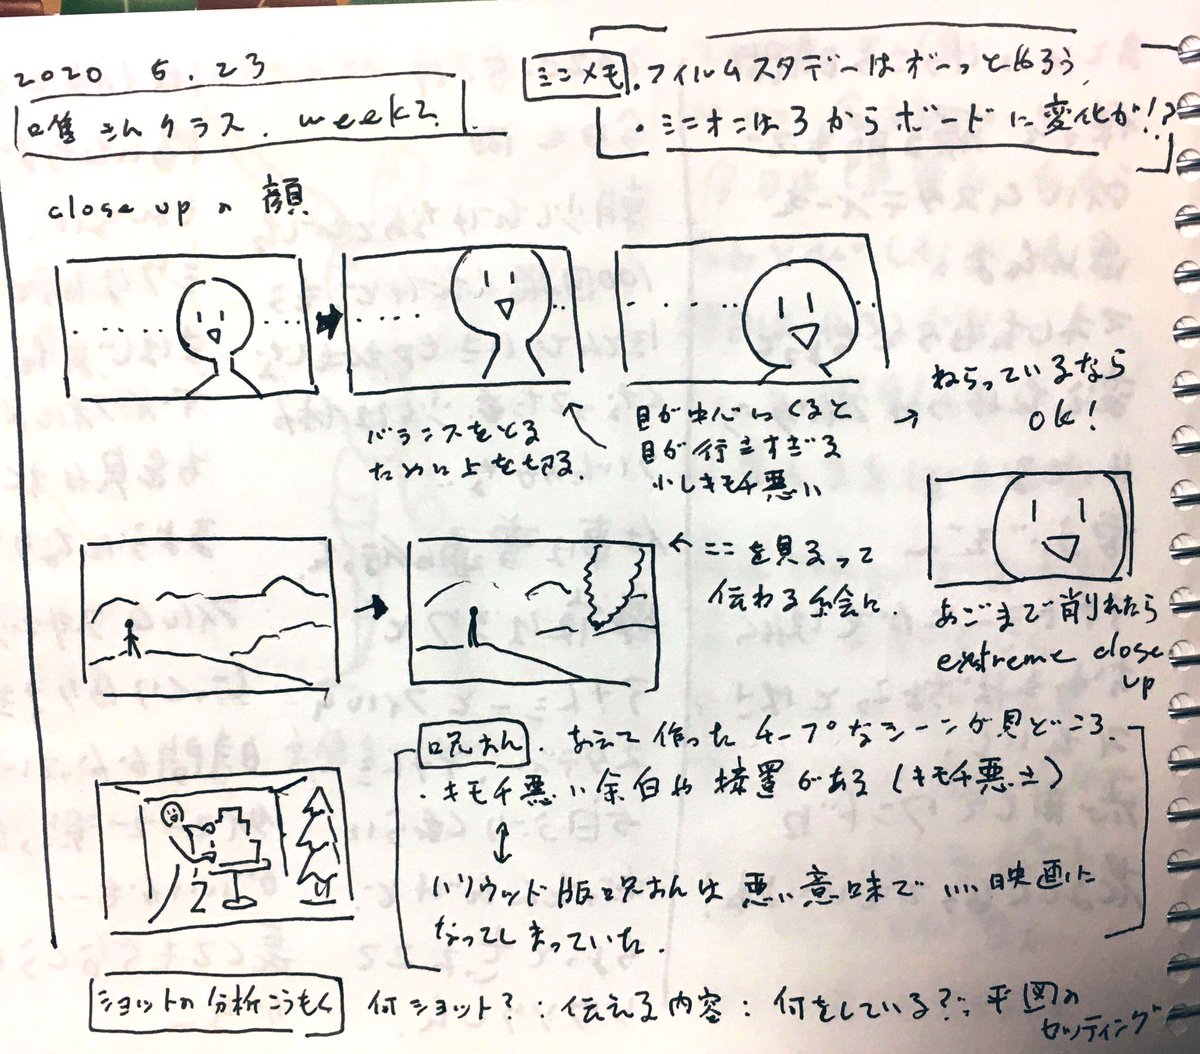 2020 5.23
唯さんクラス. week2.
ミニメモ
・フィルムスタデーはボーっとめろう
・ミニオンは3からボードに変化が!?
close up の 顔
バランスをとる
ために上を切る.
目が中心にくると
目が行きすぎる
少しキモチ悪い
→ ねらっているなら
OK!
← ここを見るって
伝わる絵に.
あごまで削れたら
extreme close
up
呪おん
・あえて作ったチープなシーンが見どころ.
・キモチ悪い余白や接置がある(キモチ悪さ)
ハリウッド版呪おんは悪い意味でいい映画に
なってしまっていた.
ショットの分析こうもく
何ショット? : 伝える内容 : 何をしている? : 平図の
セッティング